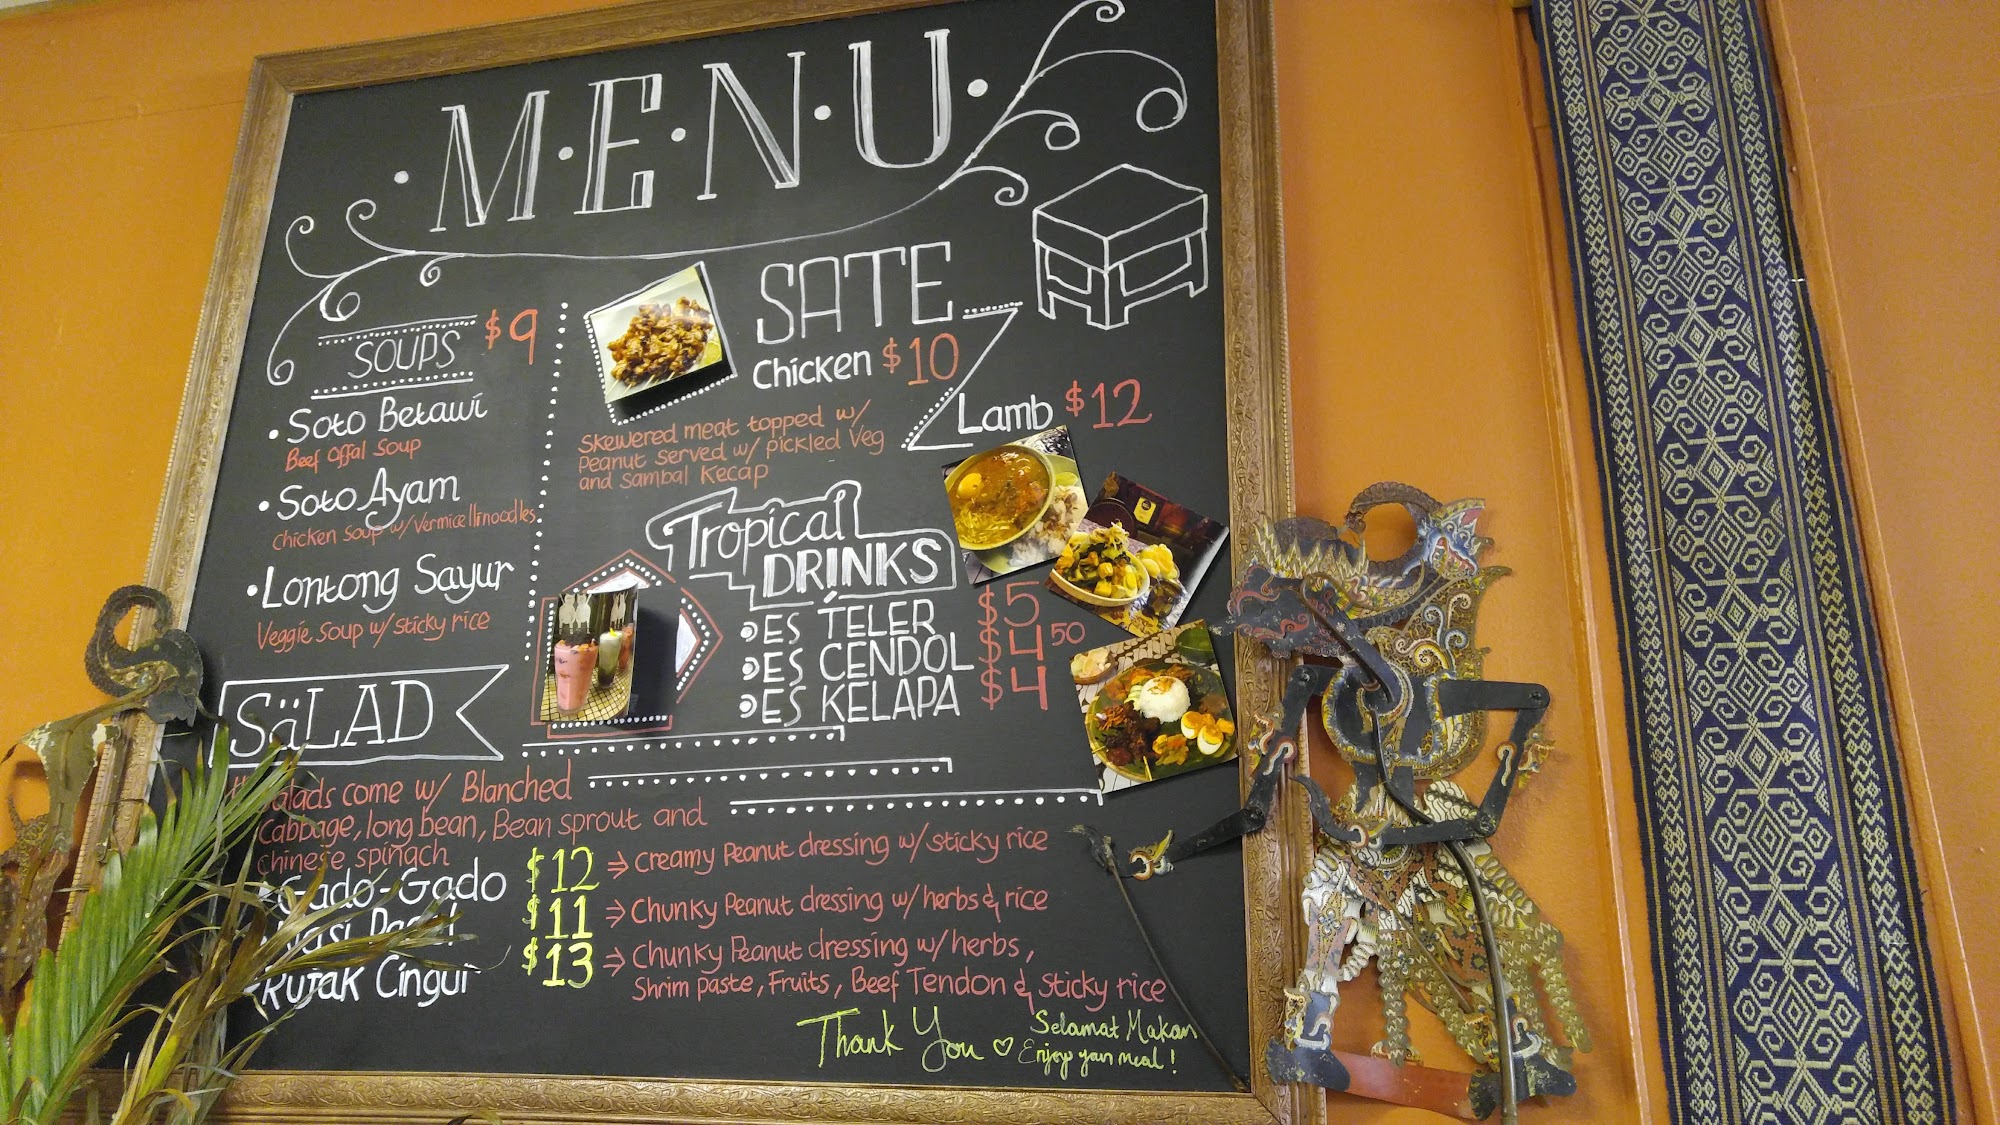 M.E.N.U.
SOUPS $9
Soto Betawi
Beef Offal Soup
Soto Ayam
Chicken Soup w/ Vermicelli noodles
Lontong Sayur
Veggie Soup w/ sticky rice
SATE
Chicken $10
Lamb $12
Skewered meat topped w/
Peanut served w/ pickled Veg
and sambal Kecap
Tropical
DRINKS
ES TELER $5
ES CENDOL $4 50
ES KELAPA $4
SäLAD
come w/ Blanched
Cabbage, long bean, Bean sprout and
chinese spinach
Gado-Gado $12 ⇒ Creamy Peanut dressing w/ sticky rice
$11 ⇒ Chunky Peanut dressing w/ herbs & rice
Rujak Cingur $13 ⇒ Chunky Peanut dressing w/ herbs,
Shrim paste, Fruits, Beef Tendon & sticky rice
Thank You ♡ Selamat Makan
Enjoy your meal!